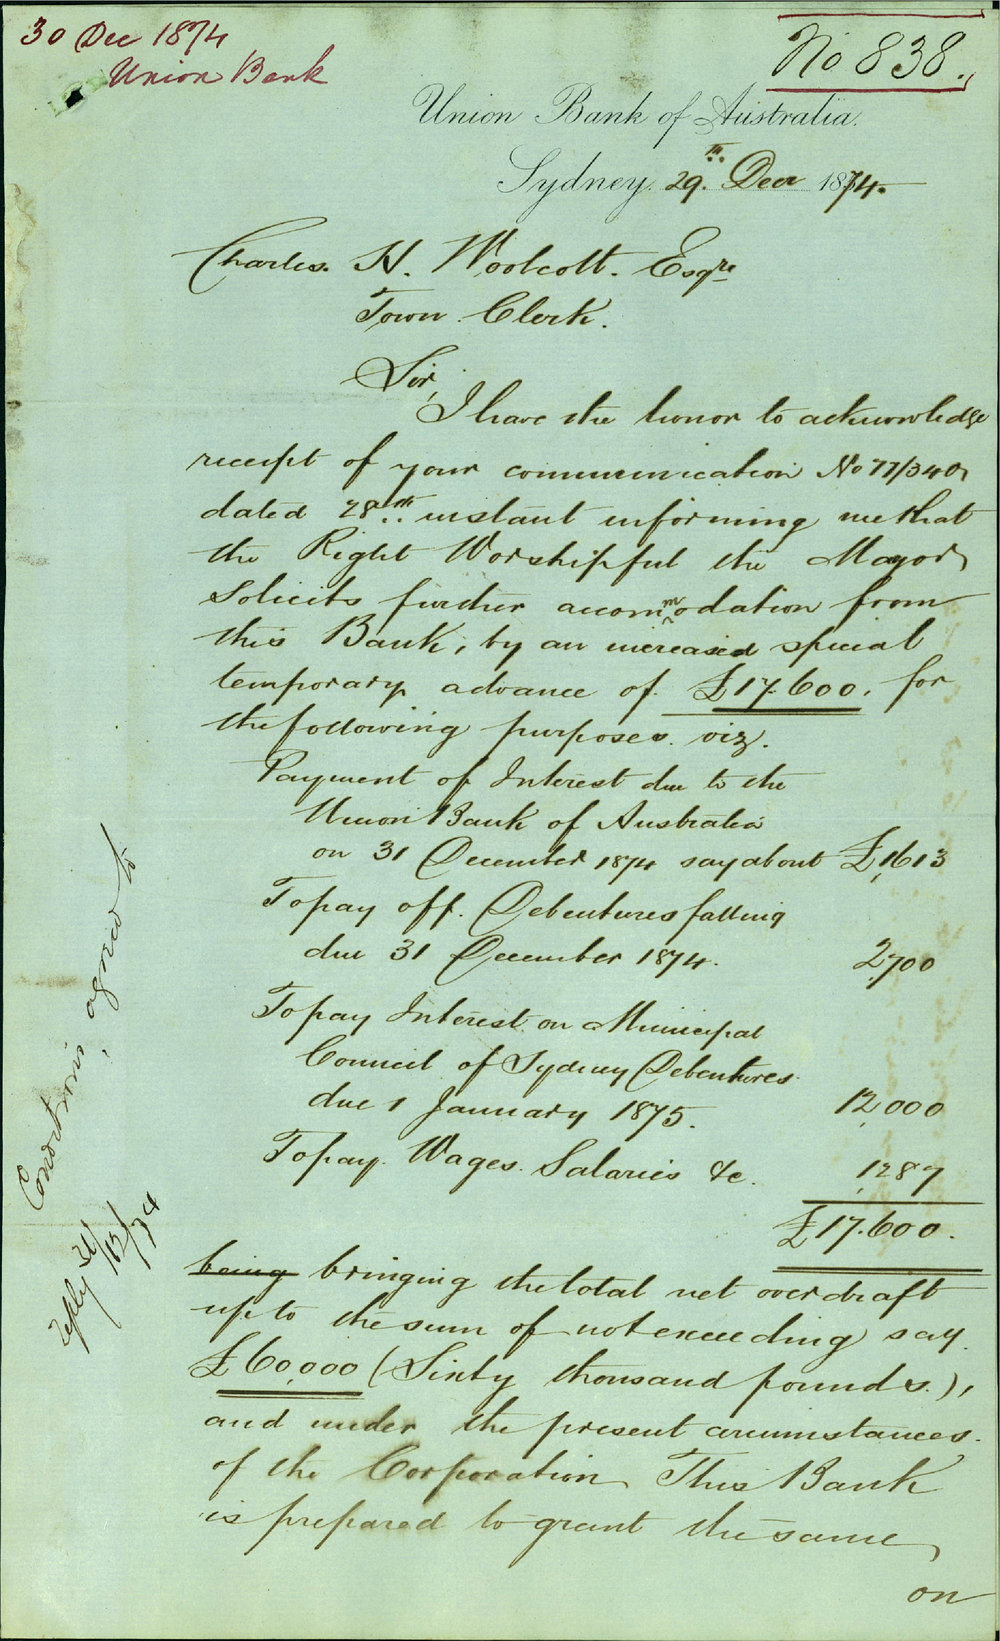 30 Dec 1874
Union Bank
No 838.
Union Bank of Australia.
Sydney. 29th Decr 1874.
Charles. H. Woolcott. Esqre
Town Clerk.
Sir,
I have the honor to acknowledge
receipt of your communication No 77/340,
dated 28th instant informing me that
the Right Worshipful the Mayor,
solicits further accommodation from
this Bank, by an increased special
temporary advance of £17.600. for
the following purposes. viz.
Payment of Interest due to the
Union Bank of Australia
on 31 December 1874 say about £1,613
To pay off. Debentures falling
due 31 December 1874. 2,700
To pay Interest on Municipal
Council of Sydney Debentures
due 1 January 1875. 12,000
To pay. Wages. Salaries &c. 1,287
£17.600.
being bringing the total net overdraft
up to the sum of not exceeding say
£60,000 (Sixty thousand pounds.),
and under the present circumstances.
of the Corporation This Bank
is prepared to grant the same,
on
Conditions agreed to
reply 31/12/74